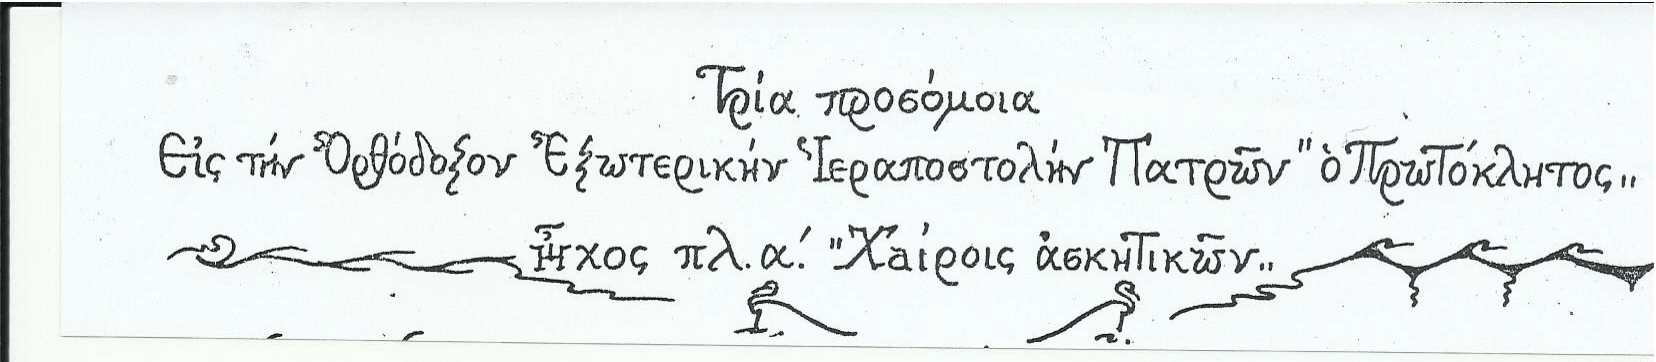 Τρία προσόμοια
Εἰς τήν Ὀρθόδοξον Ἐξωτερικήν Ἱεραποστολήν Πατρῶν "ὁ Πρωτόκλητος„
Ἦχος πλ. α΄. "Χαίροις ἀσκητικῶν„